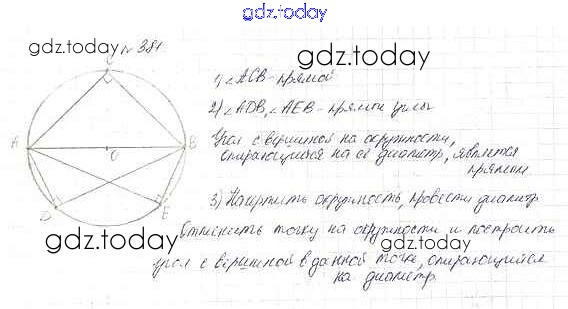 gdz.today
gdz.today
№ 381
gdz.today
C
1) ∠ACB - прямой
2) ∠ADB, ∠AEB - прямые углы
A
O
B
Угол с вершиной на окружности,
опирающийся на её диаметр, является
прямым
D
E
3) Начертить окружность, провести диаметр
Отметить точку на окружности и построить
gdz.today
gdz.today
угол с вершиной в данной точке, опирающийся
на диаметр